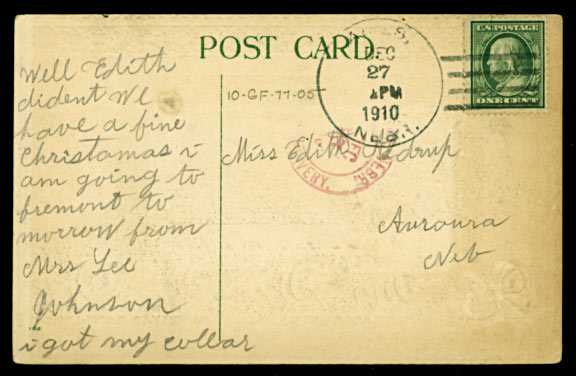 POST CARD.
Well Edith
dident We
have a fine
Christamas i
am going to
fremont to
morrow from
Mrs Lee
Johnson
i got my collar
10-GF-77-05
DEC
27
PM
1910
NEBR.
U.S. POSTAGE
ONE CENT
Miss Edith
NEBR.
Auroura
Neb